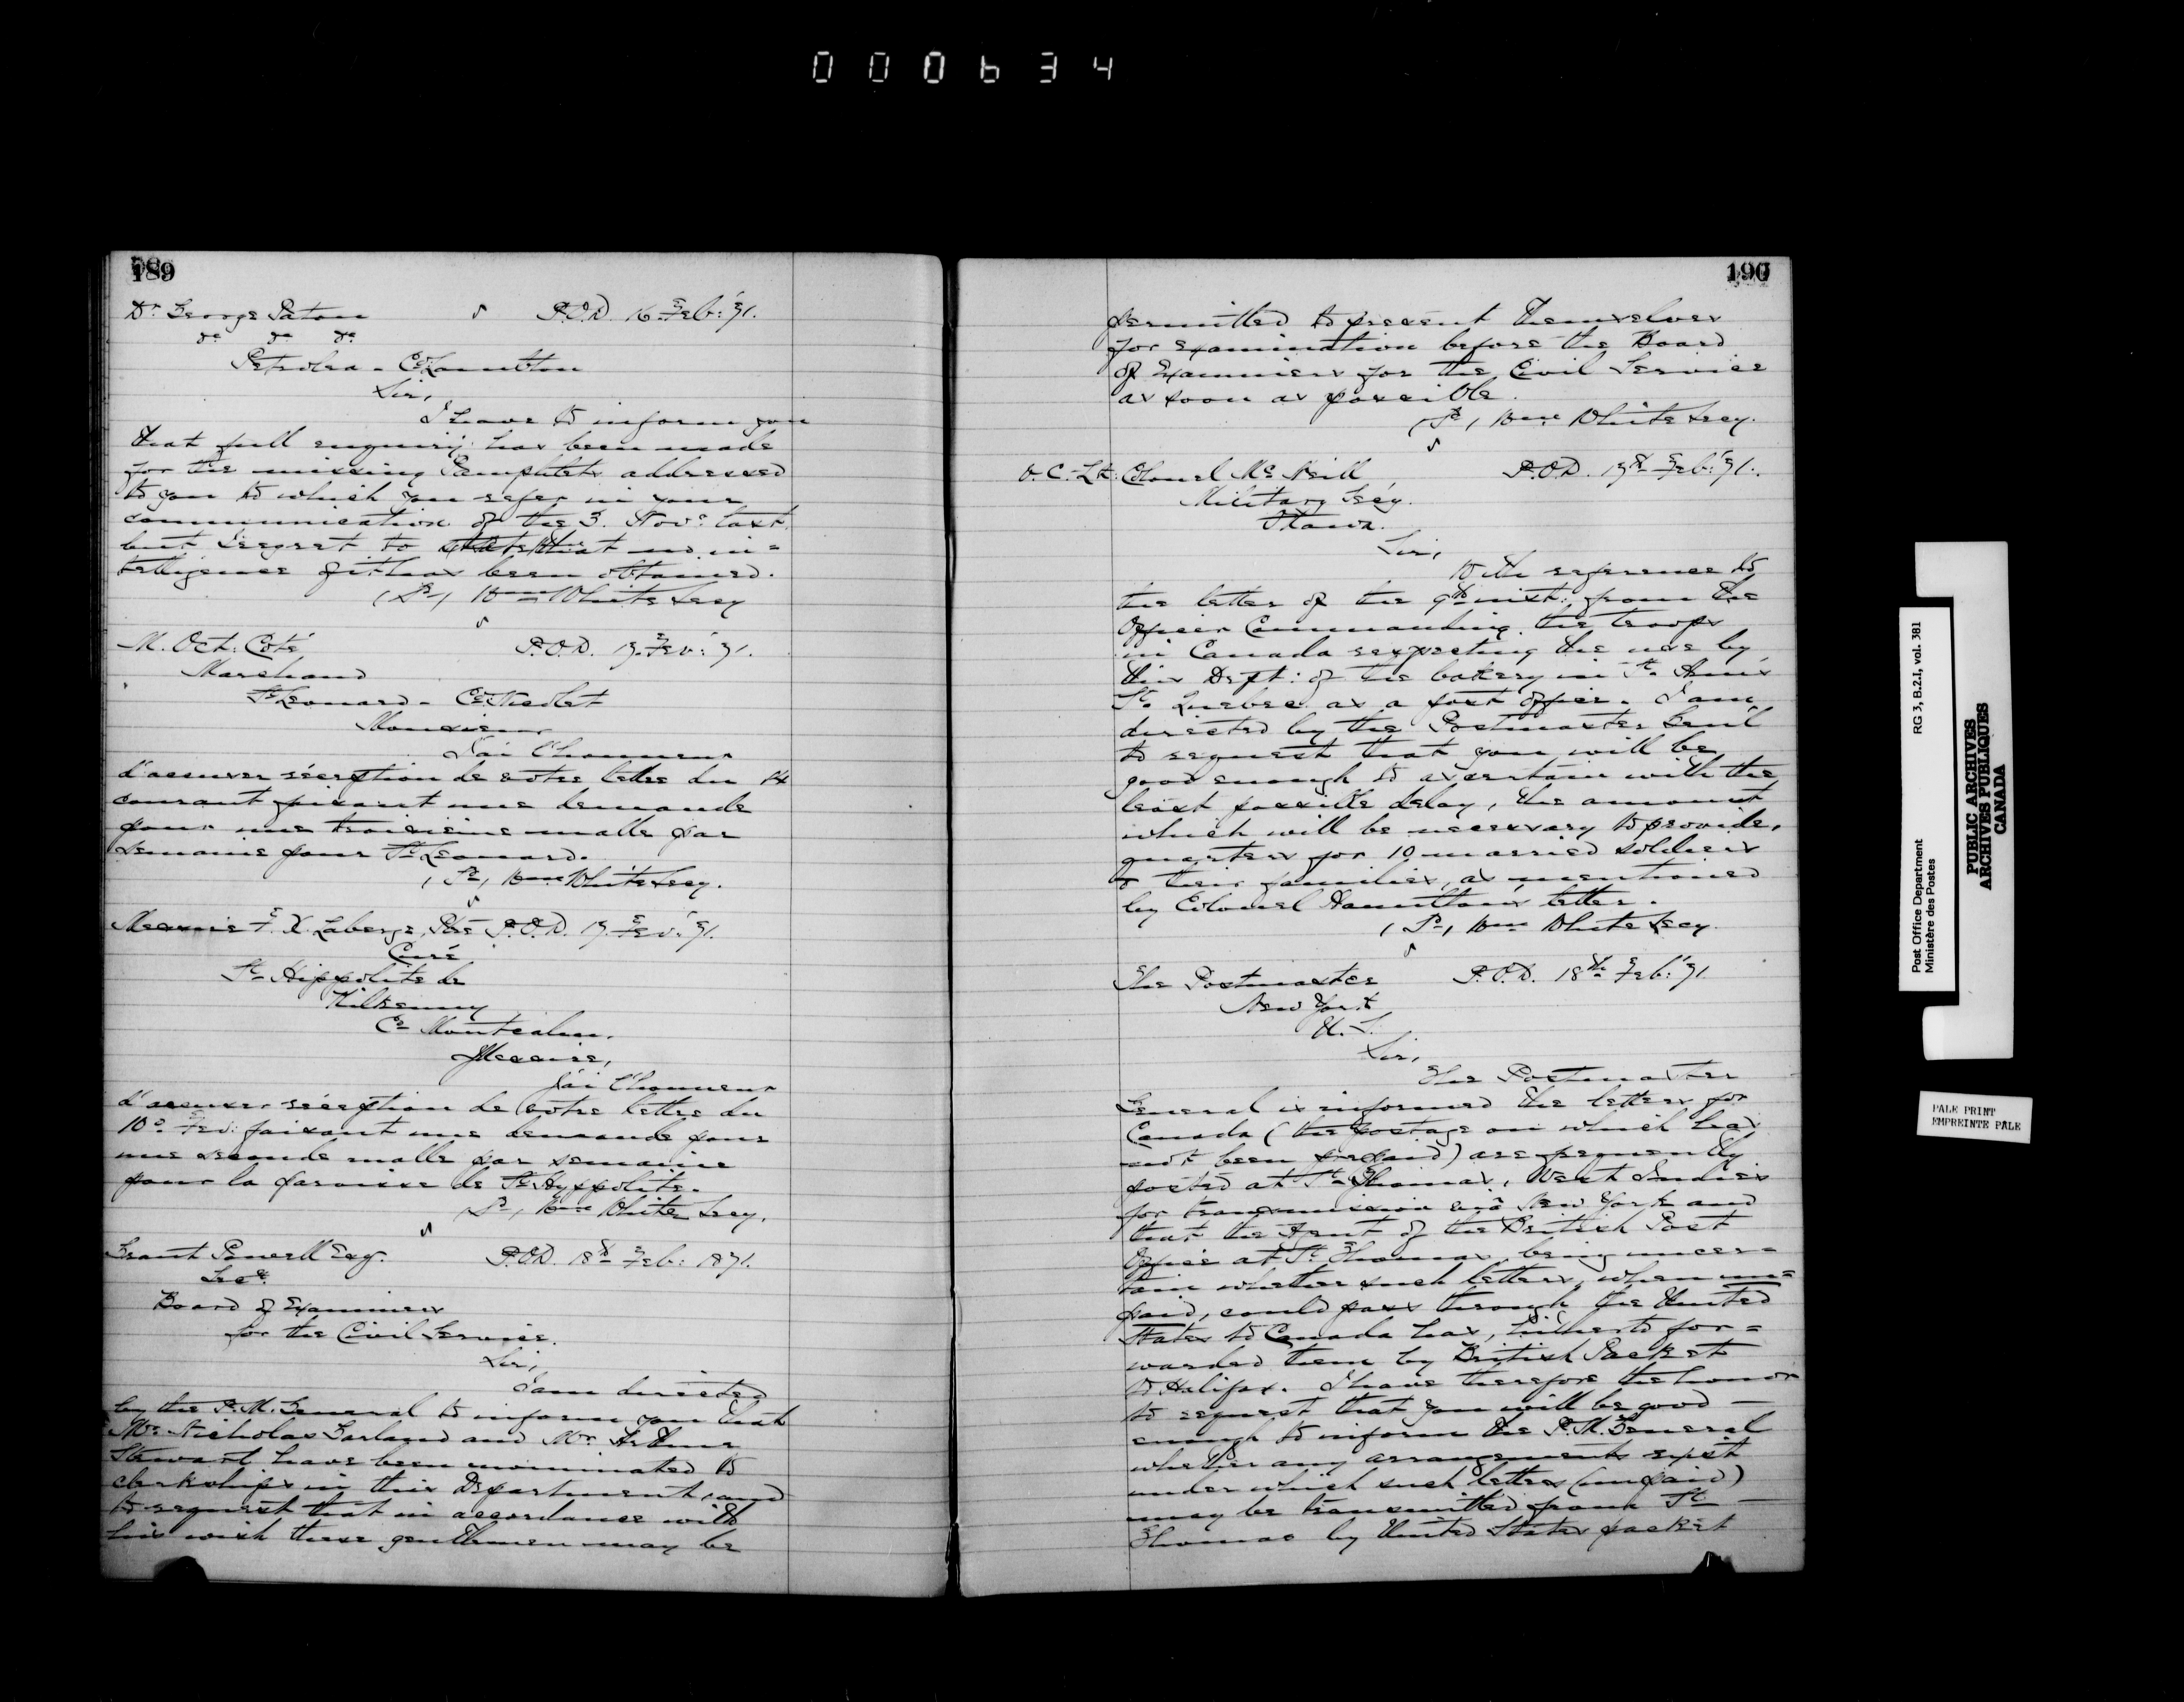 000634
189
Dr George Paton P.O.D. 16 Feb: '71.
do do do
Petrolea - Co Lambton
Sir,
I have to inform you
that full enquiry has been made
for the missing Pamphlets addressed
to you to which you refer in your
communication of the 3. Novr last.
but regret to state that no in=
telligence of it has been obtained.
(Sd) Wm White Secy
M. Oct: Coté P.O.D. 17. Fev: '71.
Marchand
St Leonard - Co: Nicolet
Monsieur
J'ai l'honneur
d'accuser réception de votre lettre du 14
courant faisant une demande
pour une troisième malle par
semaine pour St Leonard.
(Sd) Wm White Secy.
Messire F. X. Laberge, Ptre P.O.D. 17. Fev: '71.
Curé
St Hippolite de
Kilkenny
Co Montcalm.
Messire,
J'ai l'honneur
d'accuser réception de votre lettre du
10e Fev: faisant une demande pour
une seconde malle par semaine
pour la paroisse de St Hyppolite.
(Sd) Wm White Secy.
Grant Powell Esq. P.O.D. 18th Feb: 1871.
Secy.
Board of Examiners
for the Civil Service.
Sir,
I am directed
by the P. M. General to inform you that
Mr Nicholas Garland and Mr Arthur
Stewart have been nominated to
clerkships in this Department, and
to request that in accordance with
his wish these gentlemen may be
190
permitted to present themselves
for examination before the Board
of Examiners for the Civil Service
as soon as possible.
(Sd) Wm White Secy.
Lt: Colonel Mc Neill P.O.D. 17th Feb: '71.
Military Secy.
Ottawa.
Sir,
With reference to
the letter of the 9th inst: from the
Officer Commanding the troops
in Canada respecting the use by
this Dept: of the battery in St Ann's
St. Quebec as a post office. I am
directed by the Postmaster Genl
to request that you will be
good enough to ascertain with the
least possible delay, the amount
which will be necessary to provide,
quarters for 10 married soldiers
& their families, as mentioned
by Colonel Hamilton's letter.
(Sd) Wm White Secy.
The Postmaster P.O.D. 18th Feb: '71.
New York
U. S.
Sir,
The Postmaster
General is informed the letters for
Canada (the postage on which has
not been prepaid) are frequently
posted at St Thomas, West Indies
for transmission viâ New York and
that the Agent of the British Post
Office at St Thomas, being uncer=
tain whether such letters, when un=
paid, could pass through the United
States to Canada has, hitherto for=
warded them by British Packet
to Halifax. I have therefore the honor
to request that you will be good
enough to inform the P. M. General
whether any arrangements exist
under which such letters (unpaid)
may be transmitted from St
Thomas by United States packet
Post Office Department RG 3, B.2.I, vol. 381
Ministère des Postes
PUBLIC ARCHIVES
ARCHIVES PUBLIQUES
CANADA
PALE PRINT
EMPREINTE PALE